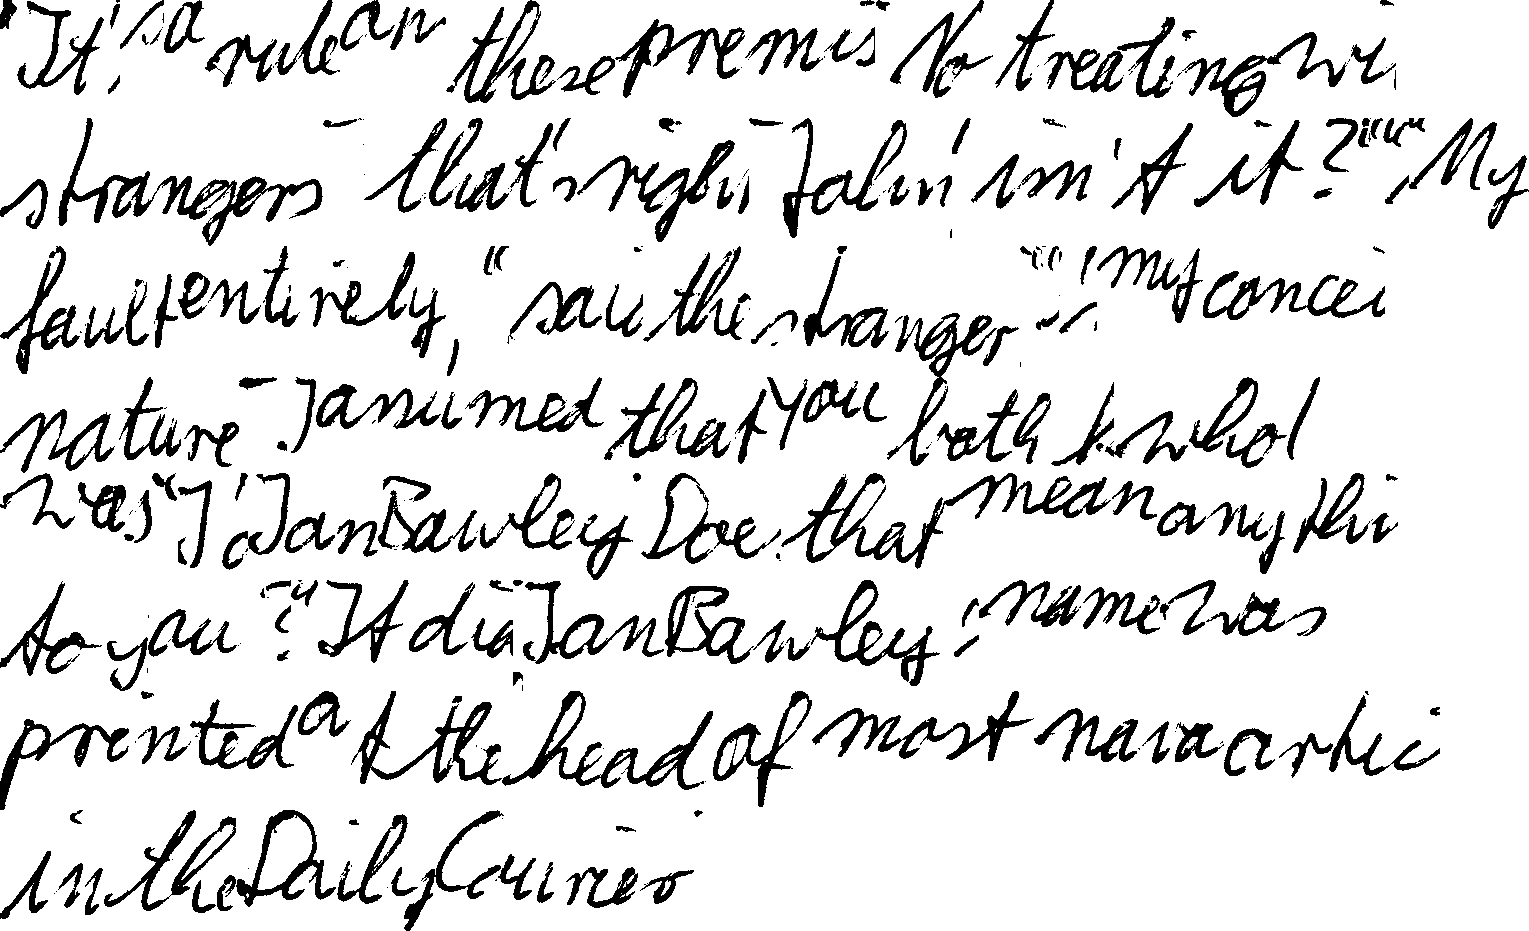 "It's a rule on these premis No treating wi
strangers that's right John, isn't it?" "My
fault entirely," said the stranger "my concei
nature I assumed that you both k who I
was "I'd Jan Bawley Doe that mean anythi
to you?" It did Jan Bawley's name was
printed at the head of most nava artic
in the Daily Courier